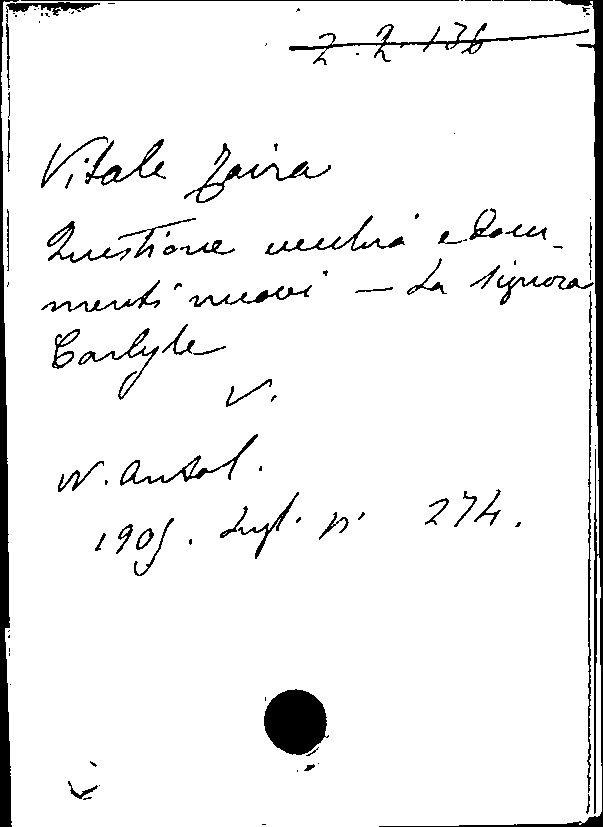 2.2.136
Vitale Zaira
Questione vecchia e docu-
menti nuovi — La Signora
Carlyle
V.
N. Antol.
1905. Lugl. p. 274.